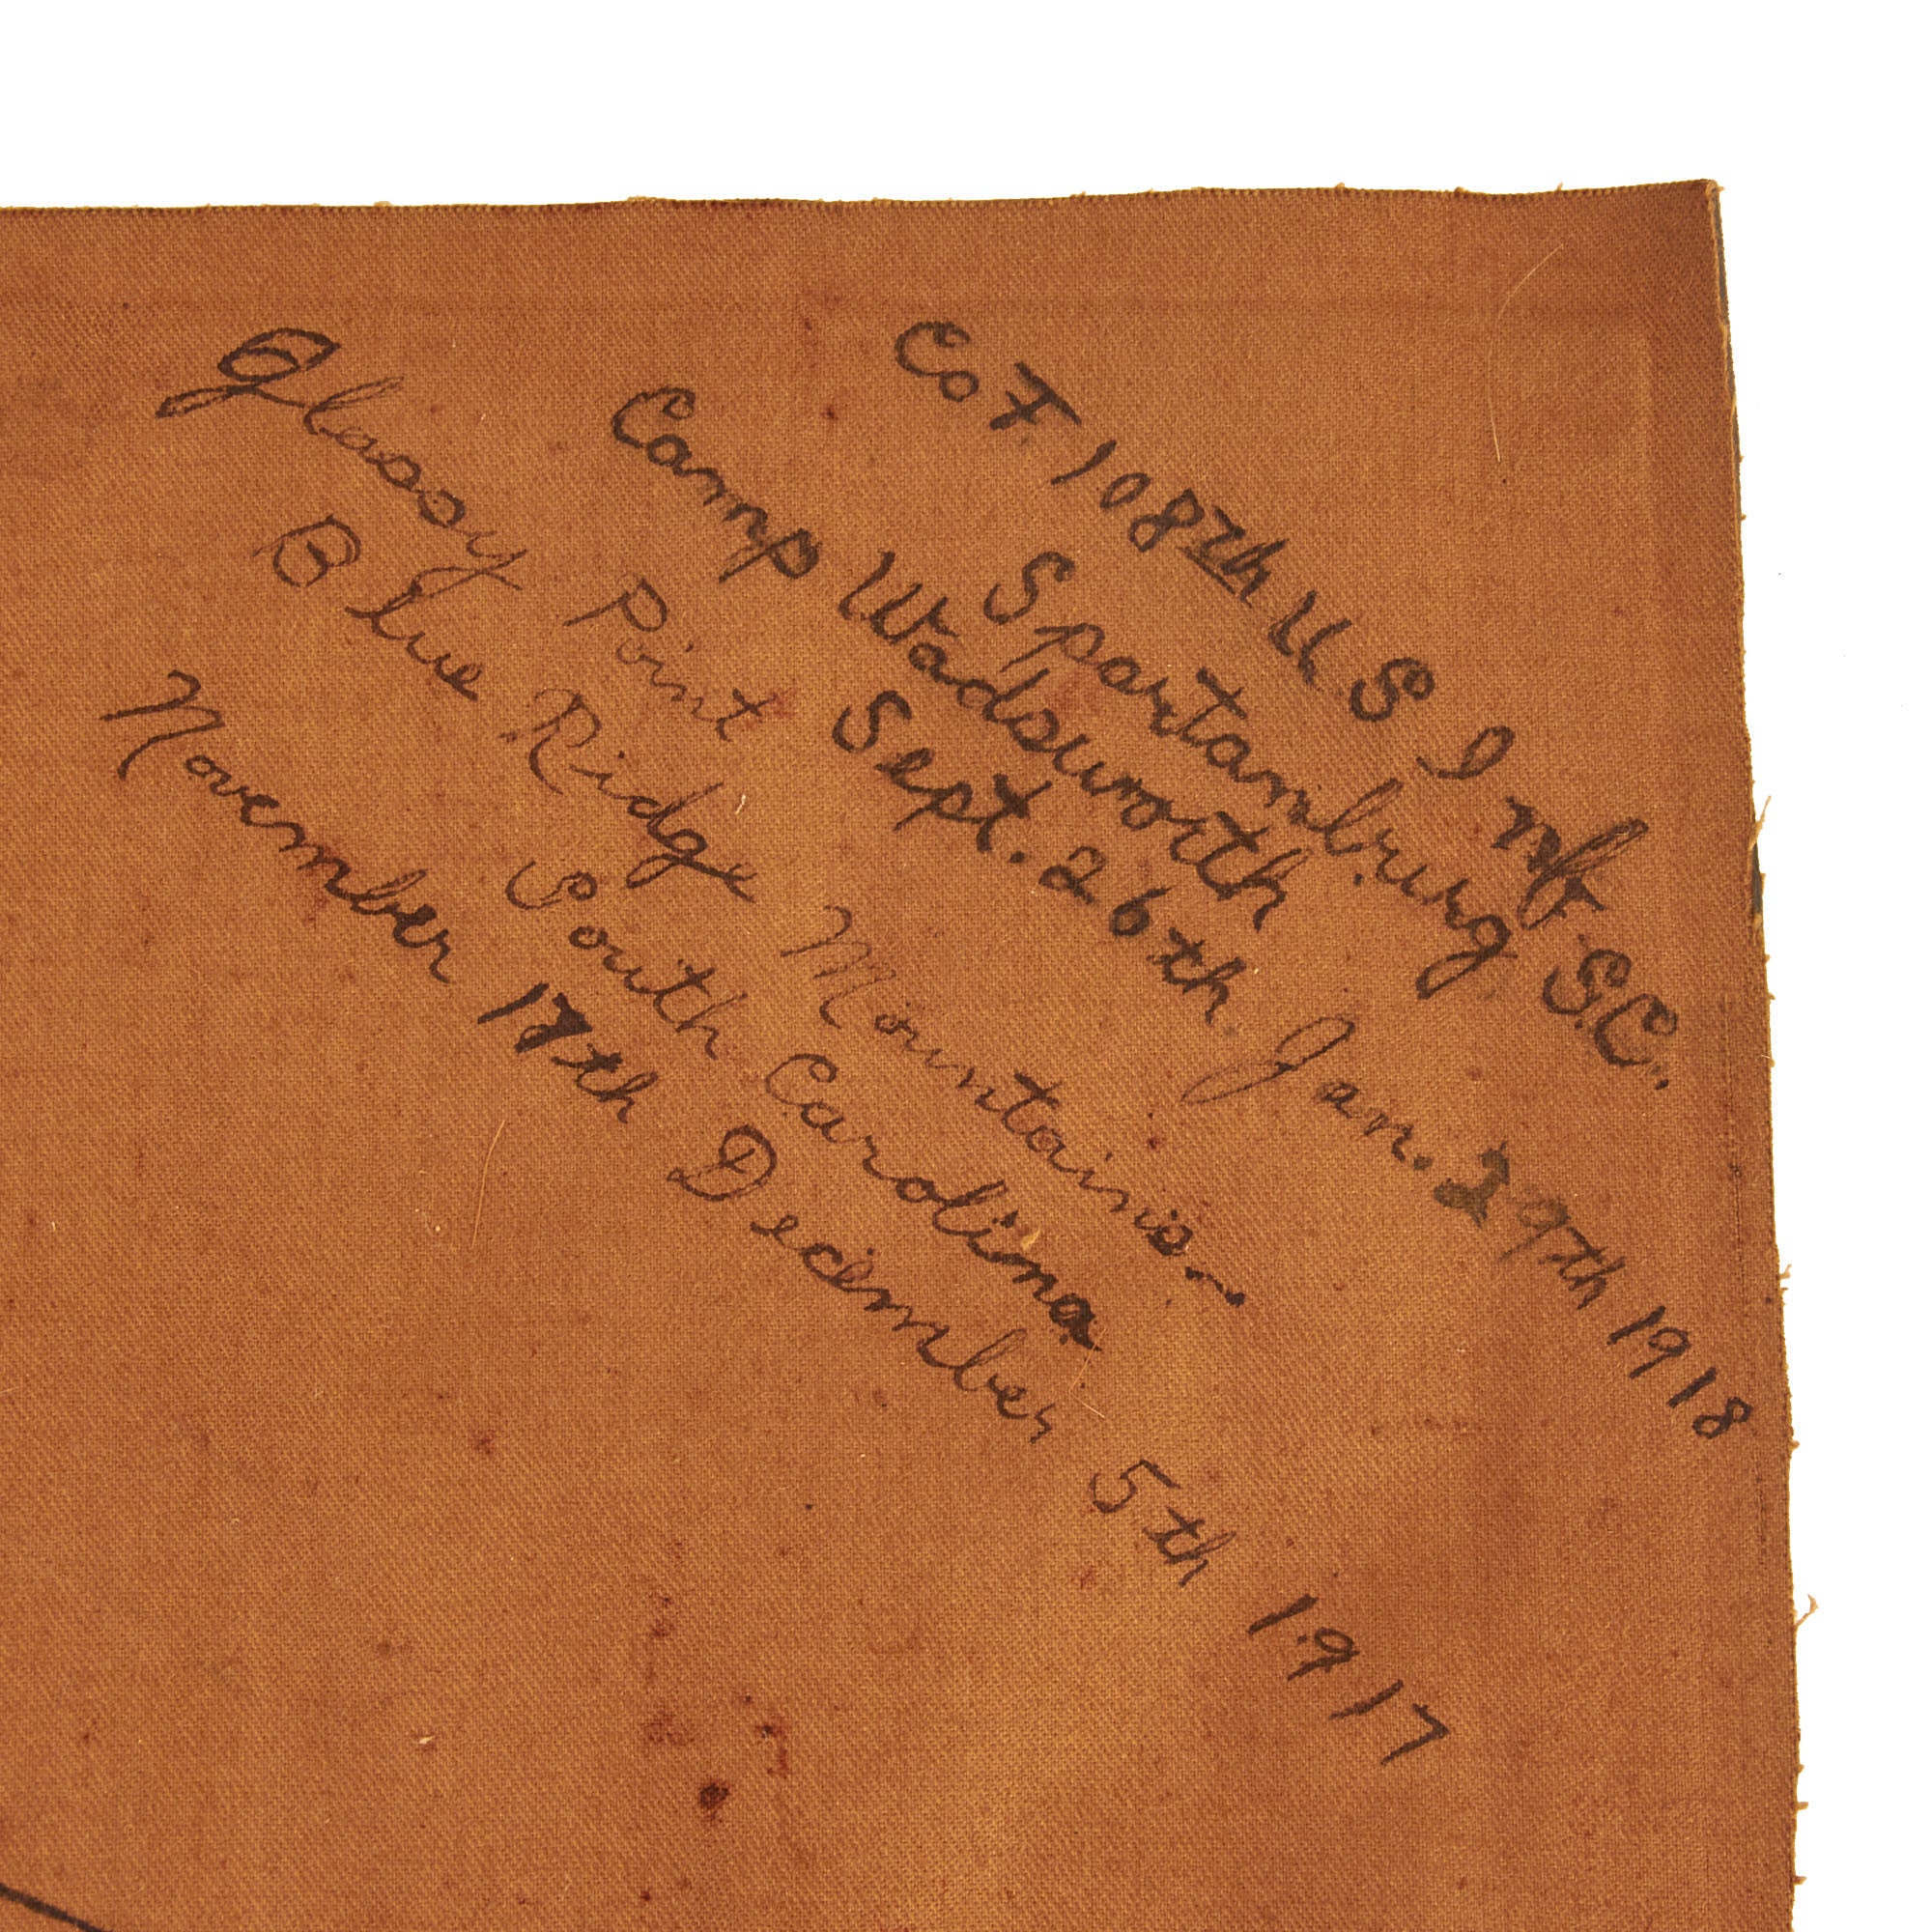 Co F. 108th U.S Inf.
Spartanburg S.C.
Camp Wadsworth
Sept. 26th. Jan. 29th 1918
Glassy Point
Blue Ridge Mountains
South Carolina
November 17th December 5th 1917